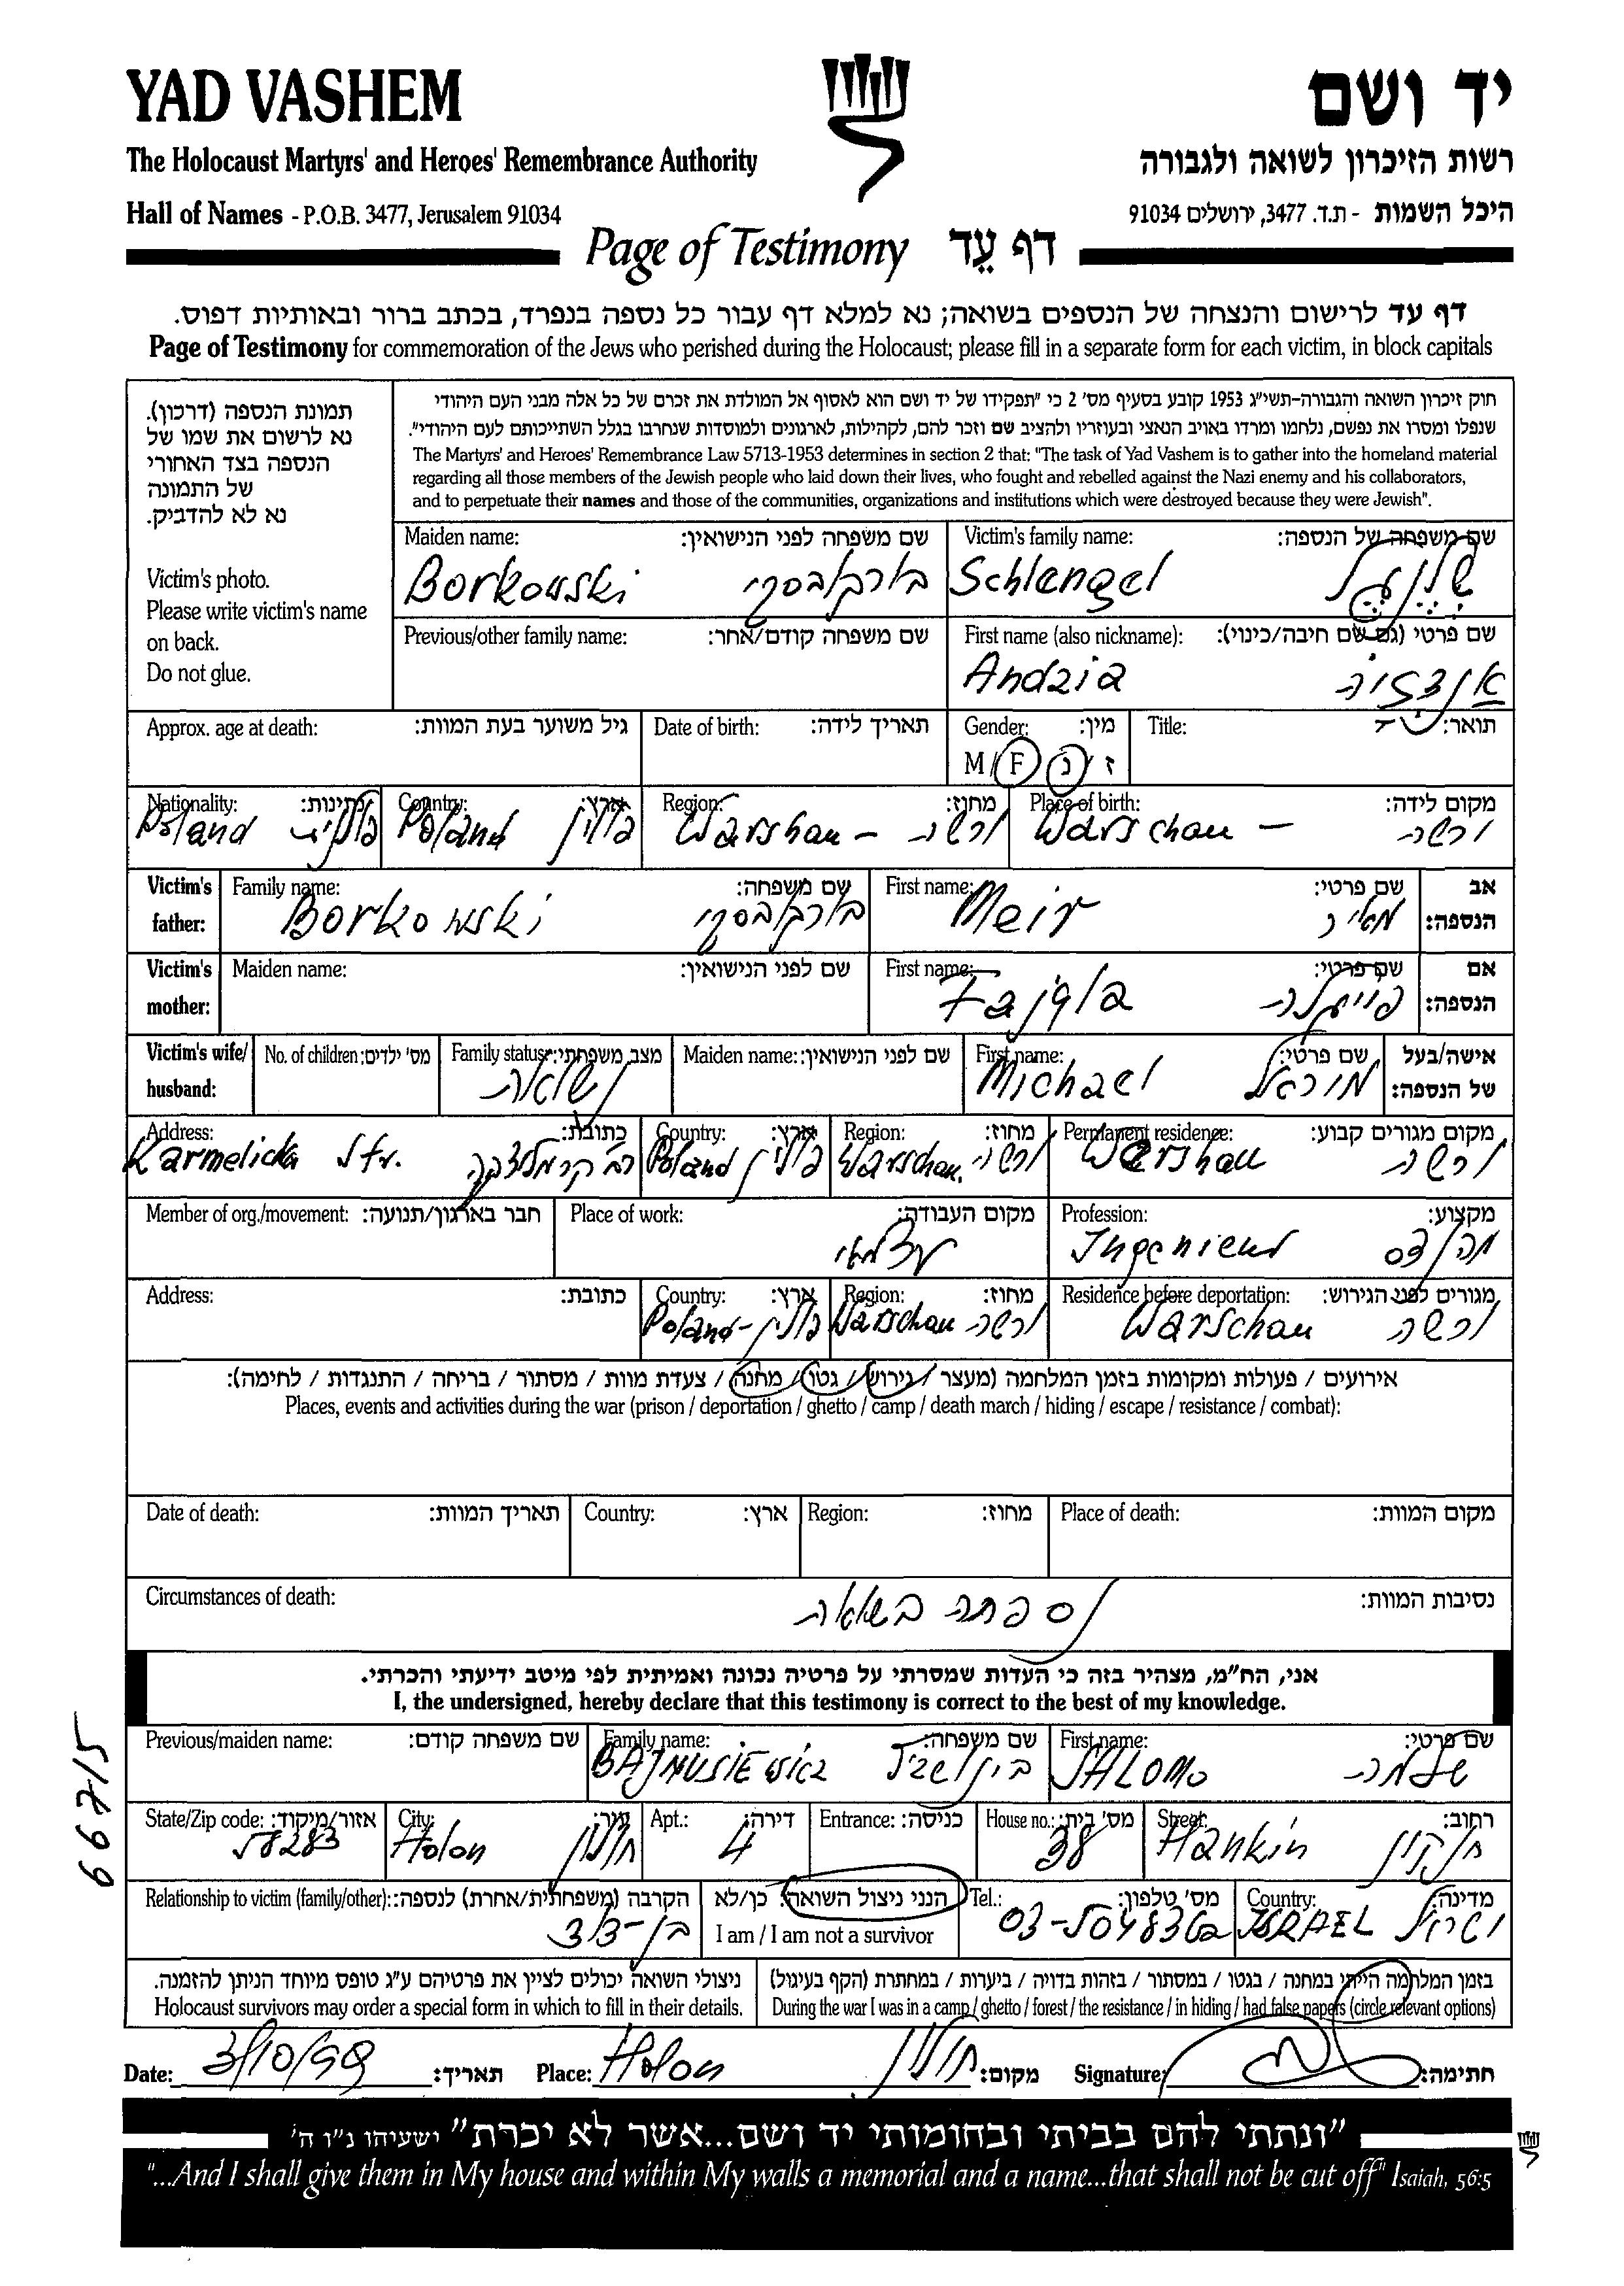 YAD VASHEM יד ושם
The Holocaust Martyrs' and Heroes' Remembrance Authority רשות הזיכרון לשואה ולגבורה
Hall of Names - P.O.B. 3477, Jerusalem 91034 היכל השמות - ת.ד. 3477, ירושלים 91034
Page of Testimony דף עֵד
דף עד לרישום והנצחה של הנספים בשואה; נא למלא דף עבור כל נספה בנפרד, בכתב ברור ובאותיות דפוס.
Page of Testimony for commemoration of the Jews who perished during the Holocaust; please fill in a separate form for each victim, in block capitals
תמונת הנספה (דרכון).
נא לרשום את שמו של
הנספה בצד האחורי
של התמונה
נא לא להדביק.
Victim's photo.
Please write victim's name
on back.
Do not glue.
חוק זיכרון השואה והגבורה-תשי"ג 1953 קובע בסעיף מס' 2 כי "תפקידו של יד ושם הוא לאסוף אל המולדת את זכרם של כל אלה מבני העם היהודי
שנפלו ומסרו את נפשם, נלחמו ומרדו באויב הנאצי ובעוזריו ולהציב שם וזכר להם, לקהילות, לארגונים ולמוסדות שנחרבו בגלל השתייכותם לעם היהודי".
The Martyrs' and Heroes' Remembrance Law 5713-1953 determines in section 2 that: "The task of Yad Vashem is to gather into the homeland material
regarding all those members of the Jewish people who laid down their lives, who fought and rebelled against the Nazi enemy and his collaborators,
and to perpetuate their names and those of the communities, organizations and institutions which were destroyed because they were Jewish".
Maiden name: שם משפחה לפני הנישואין: Victim's family name: שם משפחה של הנספה:
Borkowski בורקובסקי Schlengel שלנגל
Previous/other family name: שם משפחה קודם/אחר: First name (also nickname): שם פרטי (גם שם חיבה/כינוי):
Andzia אנדזיה
Approx. age at death: גיל משוער בעת המוות: Date of birth: תאריך לידה: Gender: מין: Title: תואר:
M / F ז / נ
Nationality: נתינות: Country: ארץ: Region: מחוז: Place of birth: מקום לידה:
Poland פולניה Poland פולין Warschau - ורשה Warschau - ורשה
Victim's father: Family name: שם משפחה: First name: שם פרטי: אב הנספה:
Borkowski בורקובסקי Meir מאיר
Victim's mother: Maiden name: שם לפני הנישואין: First name: שם פרטי: אם הנספה:
Fajgla פייגלה
Victim's wife/ husband: No. of children: מס' ילדים: Family status: מצב משפחתי: Maiden name: שם לפני הנישואין: First name: שם פרטי: אישה/בעל של הנספה:
נשואה Michael מיכאל
Address: כתובת: Country: ארץ: Region: מחוז: Permanent residence: מקום מגורים קבוע:
Karmelicka Str. רח' קרמליצקה Poland פולין Warschau. ורשה Warshau ורשה
Member of org./movement: חבר בארגון/תנועה: Place of work: מקום העבודה: Profession: מקצוע:
עצמאי Ingenieur מהנדס
Address: כתובת: Country: ארץ: Region: מחוז: Residence before deportation: מגורים לפני הגירוש:
Poland - פולין Warschau ורשה Warschau ורשה
אירועים / פעולות ומקומות בזמן המלחמה (מעצר / גירוש / גטו / מחנה / צעדת מוות / מסתור / בריחה / התנגדות / לחימה):
Places, events and activities during the war (prison / deportation / ghetto / camp / death march / hiding / escape / resistance / combat):
Date of death: תאריך המוות: Country: ארץ: Region: מחוז: Place of death: מקום המוות:
Circumstances of death: נסיבות המוות:
נספתה בשואה
אני, הח"מ, מצהיר בזה כי העדות שמסרתי על פרטיה נכונה ואמיתית לפי מיטב ידיעתי והכרתי.
I, the undersigned, hereby declare that this testimony is correct to the best of my knowledge.
66715
Previous/maiden name: שם משפחה קודם: Family name: שם משפחה: First name: שם פרטי:
BAJNUSIEWICZ SALOMO שלמה
State/Zip code: אזור/מיקוד: City: עיר: Apt.: דירה: Entrance: כניסה: House no.: מס' בית: Street: רחוב:
58283 Holon חולון 4 38 Hankin חנקין
Relationship to victim (family/other): הקרבה (משפחתית/אחרת) לנספה: הנני ניצול השואה: כן/לא Tel.: מס' טלפון: Country: מדינה:
בן-דוד I am / I am not a survivor 03-5048362 ISRAEL ישראל
ניצולי השואה יכולים לציין את פרטיהם ע"ג טופס מיוחד הניתן להזמנה. בזמן המלחמה הייתי במחנה / בגטו / במסתור / בזהות בדויה / ביערות / במחתרת (הקף בעיגול)
Holocaust survivors may order a special form in which to fill in their details. During the war I was in a camp / ghetto / forest / the resistance / in hiding / had false papers (circle relevant options)
Date: 3/10/98 תאריך: Place: Holon חולון מקום: Signature: חתימה:
"ונתתי להם בביתי ובחומותי יד ושם...אשר לא יכרת" ישעיהו נ"ו ה'
"...And I shall give them in My house and within My walls a memorial and a name...that shall not be cut off" Isaiah, 56:5